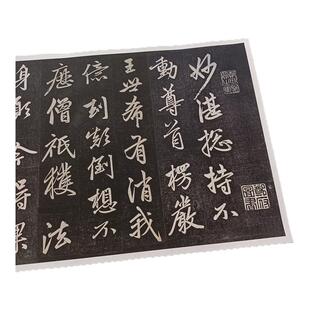 妙湛捴持不
動尊首楞嚴
王世希有消我
億劫顛倒想不
歷僧祇獲法
身願今得果